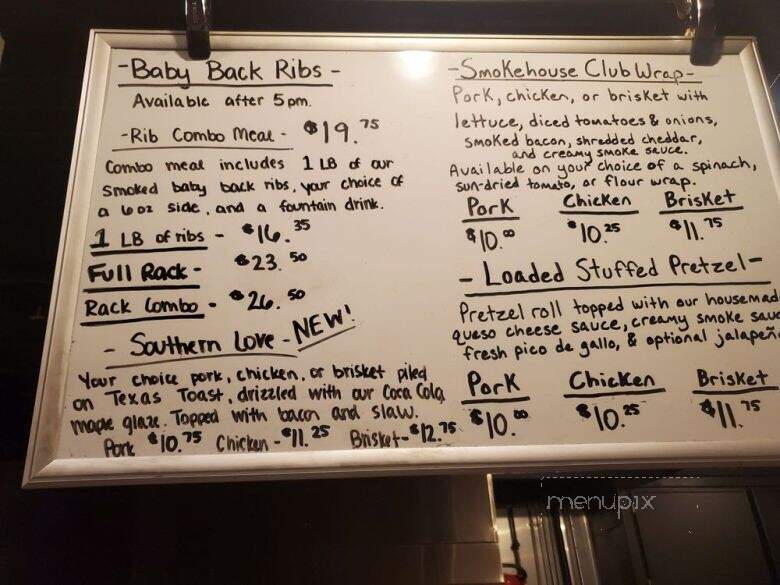 -Baby Back Ribs-
Available after 5pm.
-Rib Combo Meal- $19.75
Combo meal includes 1 LB of our
smoked baby back ribs, your choice of
a 6 oz side, and a fountain drink.
1 LB of ribs - $16.35
Full Rack - $23.50
Rack Combo - $26.50
- Southern Love - NEW!
Your choice pork, chicken, or brisket piled
on Texas Toast, drizzled with our Coca Cola
maple glaze. Topped with bacon and slaw.
Pork $10.75 Chicken - $11.25 Brisket - $12.75
-Smokehouse Club Wrap-
Pork, chicken, or brisket with
lettuce, diced tomatoes & onions,
smoked bacon, shredded cheddar,
and creamy smoke sauce.
Available on your choice of a spinach,
sun-dried tomato, or flour wrap.
Pork Chicken Brisket
$10.00 $10.25 $11.75
- Loaded Stuffed Pretzel-
Pretzel roll topped with our housemad
queso cheese sauce, creamy smoke sauc
fresh pico de gallo, & optional jalapeñ
Pork Chicken Brisket
$10.00 $10.25 $11.75
menupix